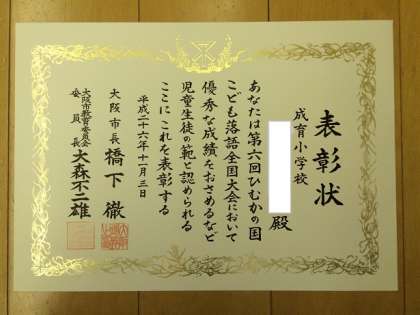 表彰状
成育小学校
殿
あなたは第六回ひむかの国
こども落語全国大会において
優秀な成績をおさめるなど
児童生徒の範と認められる
ここにこれを表彰する
平成二十六年十一月三日
大阪市長 橋下徹
大阪市教育委員会
委員長 大森不二雄